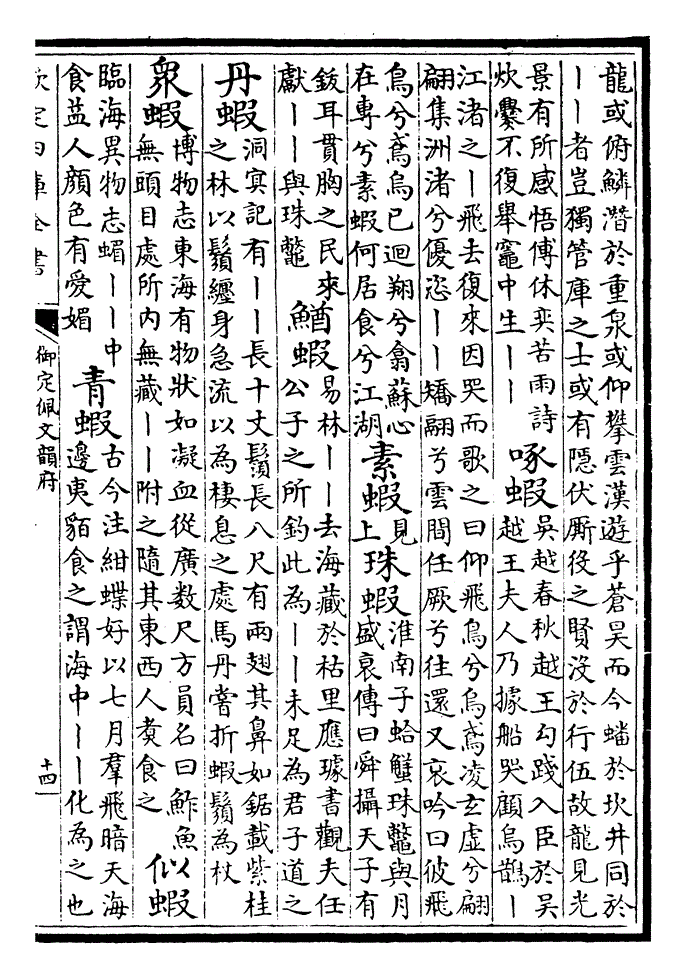 龍或俯鱗潛於重泉或仰攀雲漢遊乎蒼昊而今蟠於坎井同於
｜｜者豈獨管庫之士或有隱伏厮役之賢沒於行伍故龍見光
景有所感悟傅休奕苦雨詩
炊爨不復舉竈中生｜｜
啄蝦
吳越春秋越王勾踐入臣於吳
越王夫人乃據船哭顧烏鵲｜
江渚之｜飛去復來因哭而歌之曰仰飛鳥兮烏鳶凌玄虛兮翩
翩集洲渚兮優恣｜｜矯翮兮雲間任厥兮往還又哀吟曰彼飛
鳥兮鳶烏已迴翔兮翕蘇心
在專兮素蝦何居食兮江湖
素蝦
見
上
珠蝦
淮南子蛤蟹珠鼈與月
盛衰傳曰舜攝天子有
鈒耳貫胸之民來
獻｜｜與珠鼈
鰌蝦
易林｜｜去海藏於枯里應璩書觀夫任
公子之所釣此為｜｜未足為君子道之
丹蝦
洞㝠記有｜｜長十丈鬚長八尺有兩翅其鼻如鋸載紫桂
之林以鬚纏身急流以為棲息之處馬丹嘗折蝦鬚為杖
眾蝦
博物志東海有物狀如凝血從廣数尺方員名曰鮓魚
無頭目處所内無藏｜｜附之隨其東西人煑食之
似蝦
臨海異物志蝐｜｜中
食益人顏色有愛媚
青蝦
古今注紺蝶好以七月羣飛暗天海
邊夷貊食之謂海中｜｜化為之也
欽定四庫全書
御定佩文韻府
十四